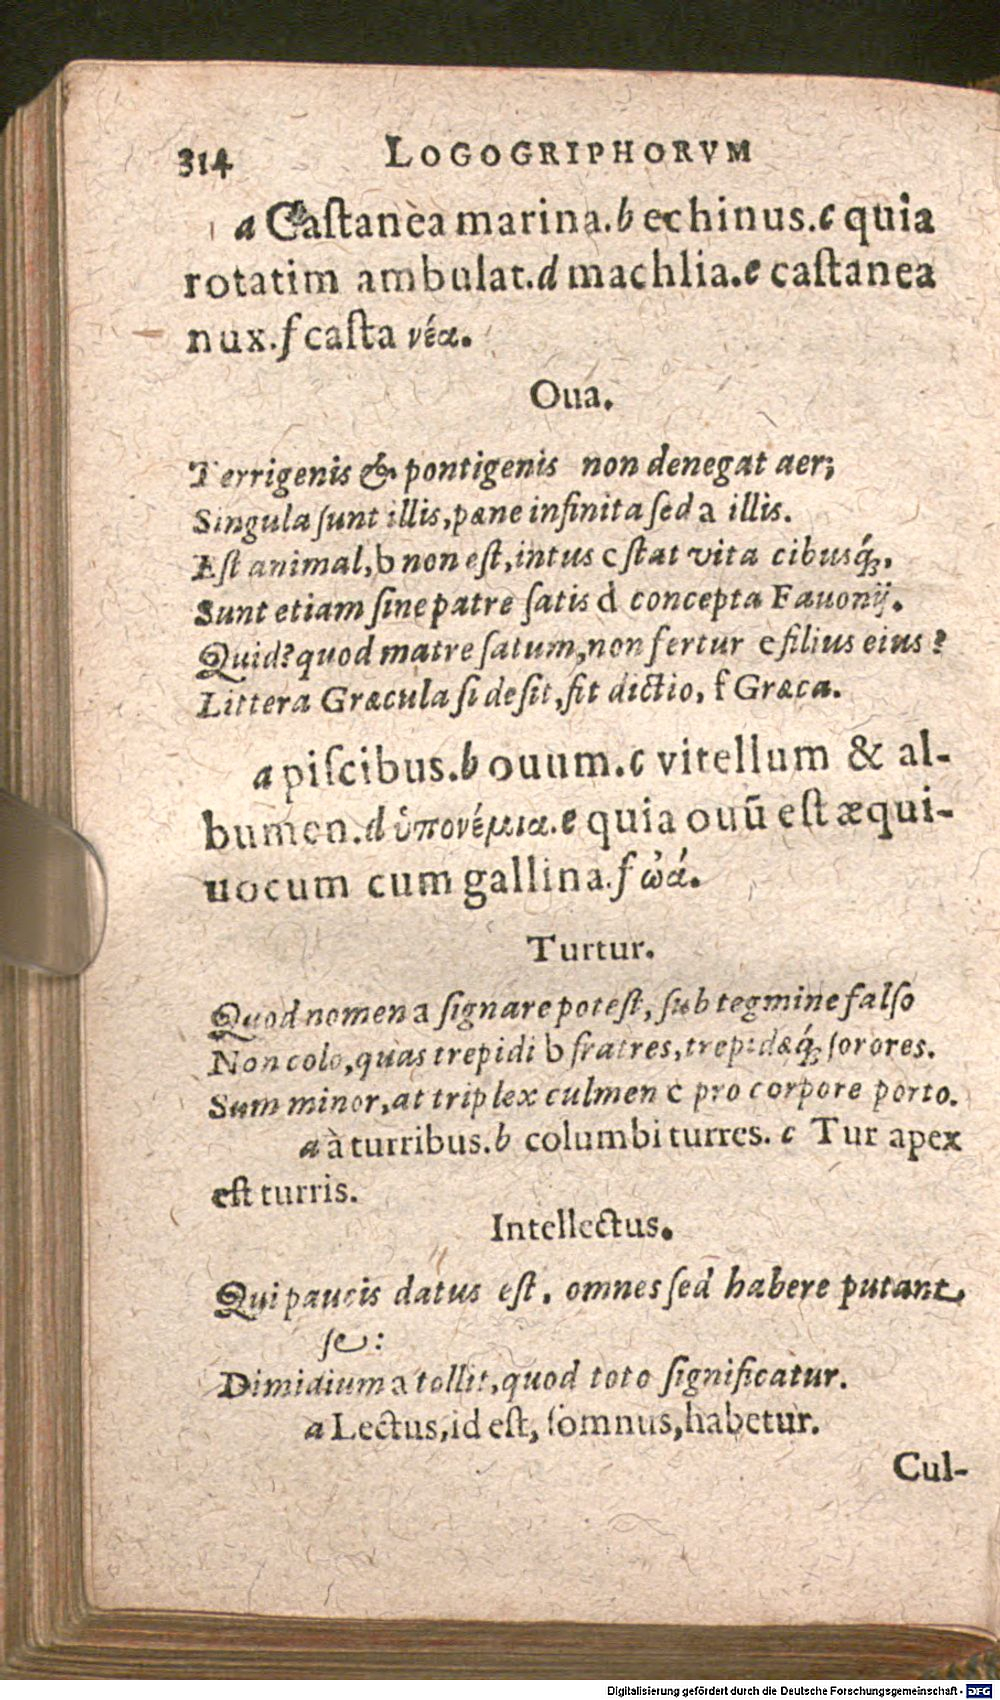 314 LOGOGRIPHORVM
a Caſtanea marina. b echinus. c quia
rotatim ambulat. d machlia. e caſtanea
nux. f caſta νέα.
Oua.
Terrigenis & pontigenis non denegat aer;
Singula ſunt illis, pæne infinita ſed a illis.
Eſt animal, b non eſt, intus c ſtat vita cibusq́;.
Sunt etiam ſine patre ſatis d concepta Fauonij.
Quid? quod matre ſatum, non fertur e filius eius?
Littera Græcula ſi deſit, fit dictio, f Græca.
a piſcibus. b ouum. c vitellum & al-
bumen. d ὑπονέμια. e quia ouū eſt æqui-
uocum cum gallina. f ὠά.
Turtur.
Quod nomen a ſignare poteſt, ſub tegmine falſo
Non colo, quas trepidi b fratres, trepidæq́; ſorores.
Sum minor, at triplex culmen c pro corpore porto.
a à turribus. b columbi turres. c Tur apex
eſt turris.
Intellectus.
Qui paucis datus eſt. omnes ſed habere putant
ſe:
Dimidium a tollit, quod toto ſignificatur.
a Lectus, id eſt, ſomnus, habetur.
Cul-
Digitalisierung gefördert durch die Deutsche Forschungsgemeinschaft - DFG